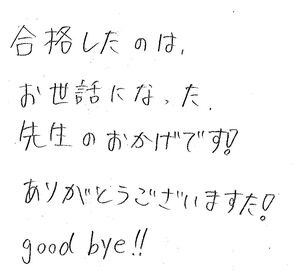 合格したのは、
お世話になった、
先生のおかげです!
ありがとうございますた!
good bye!!